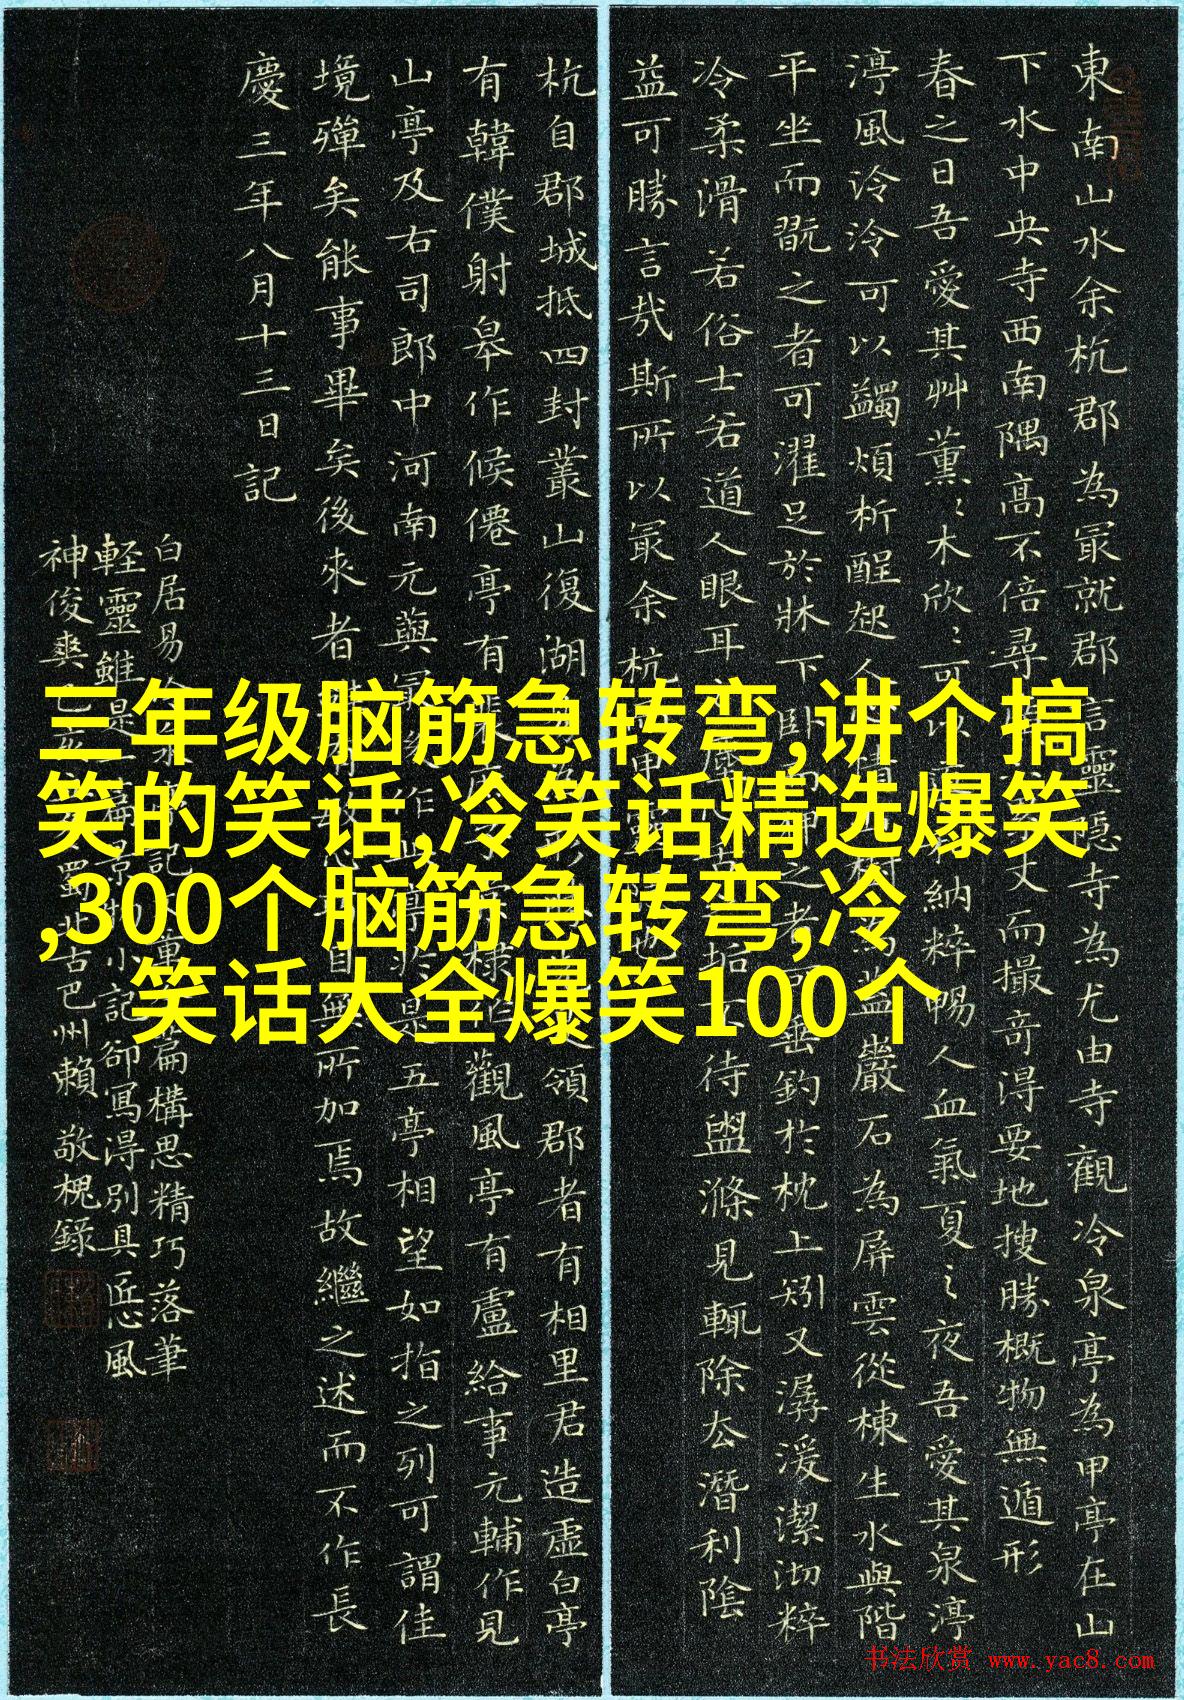 東南山水余杭郡為冣就郡言靈隱寺為尤由寺觀冷泉亭為甲亭在山
下水中央寺西南隅高不倍尋
丈而撮竒淂要地搜勝概物無遁形
春之日吾愛其艸薰〻木欣〻可
納粹暢人血氣夏之夜吾愛其泉渟
渟風泠泠可以蠲煩析酲起人
巖石為屏雲從棟生水與階
平坐而翫之者可濯足於牀下臥而
垂釣於枕上矧又潺湲潔沏粹
冷柔滑若俗士若道人眼耳
待盥滌見輒除去潛利陰
益可勝言哉斯所以冣余杭
杭自郡城抵四封叢山復湖
領郡者有相里君造虛白亭
有韓僕射皋作候僊亭有
觀風亭有盧給事元輔作見
山亭及右司郎中河南元藇冣後作此亭於是五亭相望如指之列可謂佳
境殫矣能事畢矣後來者
所加焉故繼之述而不作長
慶三年八月十三日記
白居易
篇構思精巧落筆
軽靈雖是
小記卻寫淂別具匠心風
神俊爽
蜀北古巴州賴敬槐錄
三年级脑筋急转弯,讲个搞
笑的笑话,冷笑话精选爆笑
,300个脑筋急转弯,冷
笑话大全爆笑100个
书法欣赏 www.yac8.com